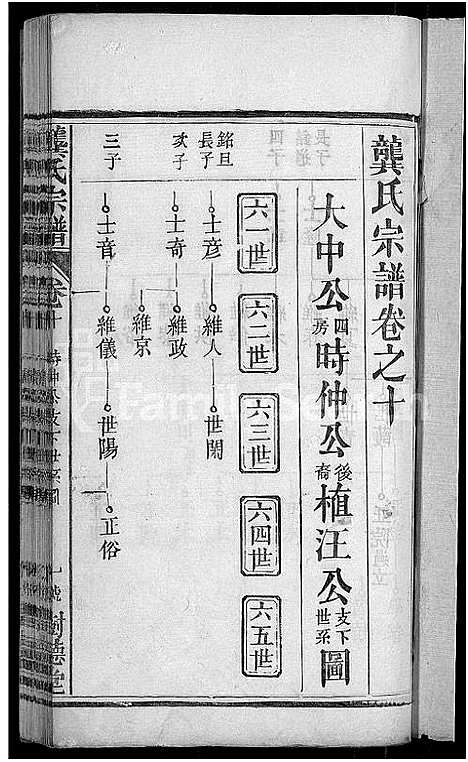 龔氏宗譜卷之十
大中公四房時仲公後裔植汪公支下世系圖
六一世
六二世
六三世
六四世
六五世
銘旦
長子
士彥
維人
世閑
次子
士奇
維政
維京
三子
士音
維儀
世陽
正俗
龔氏宗譜
卷十